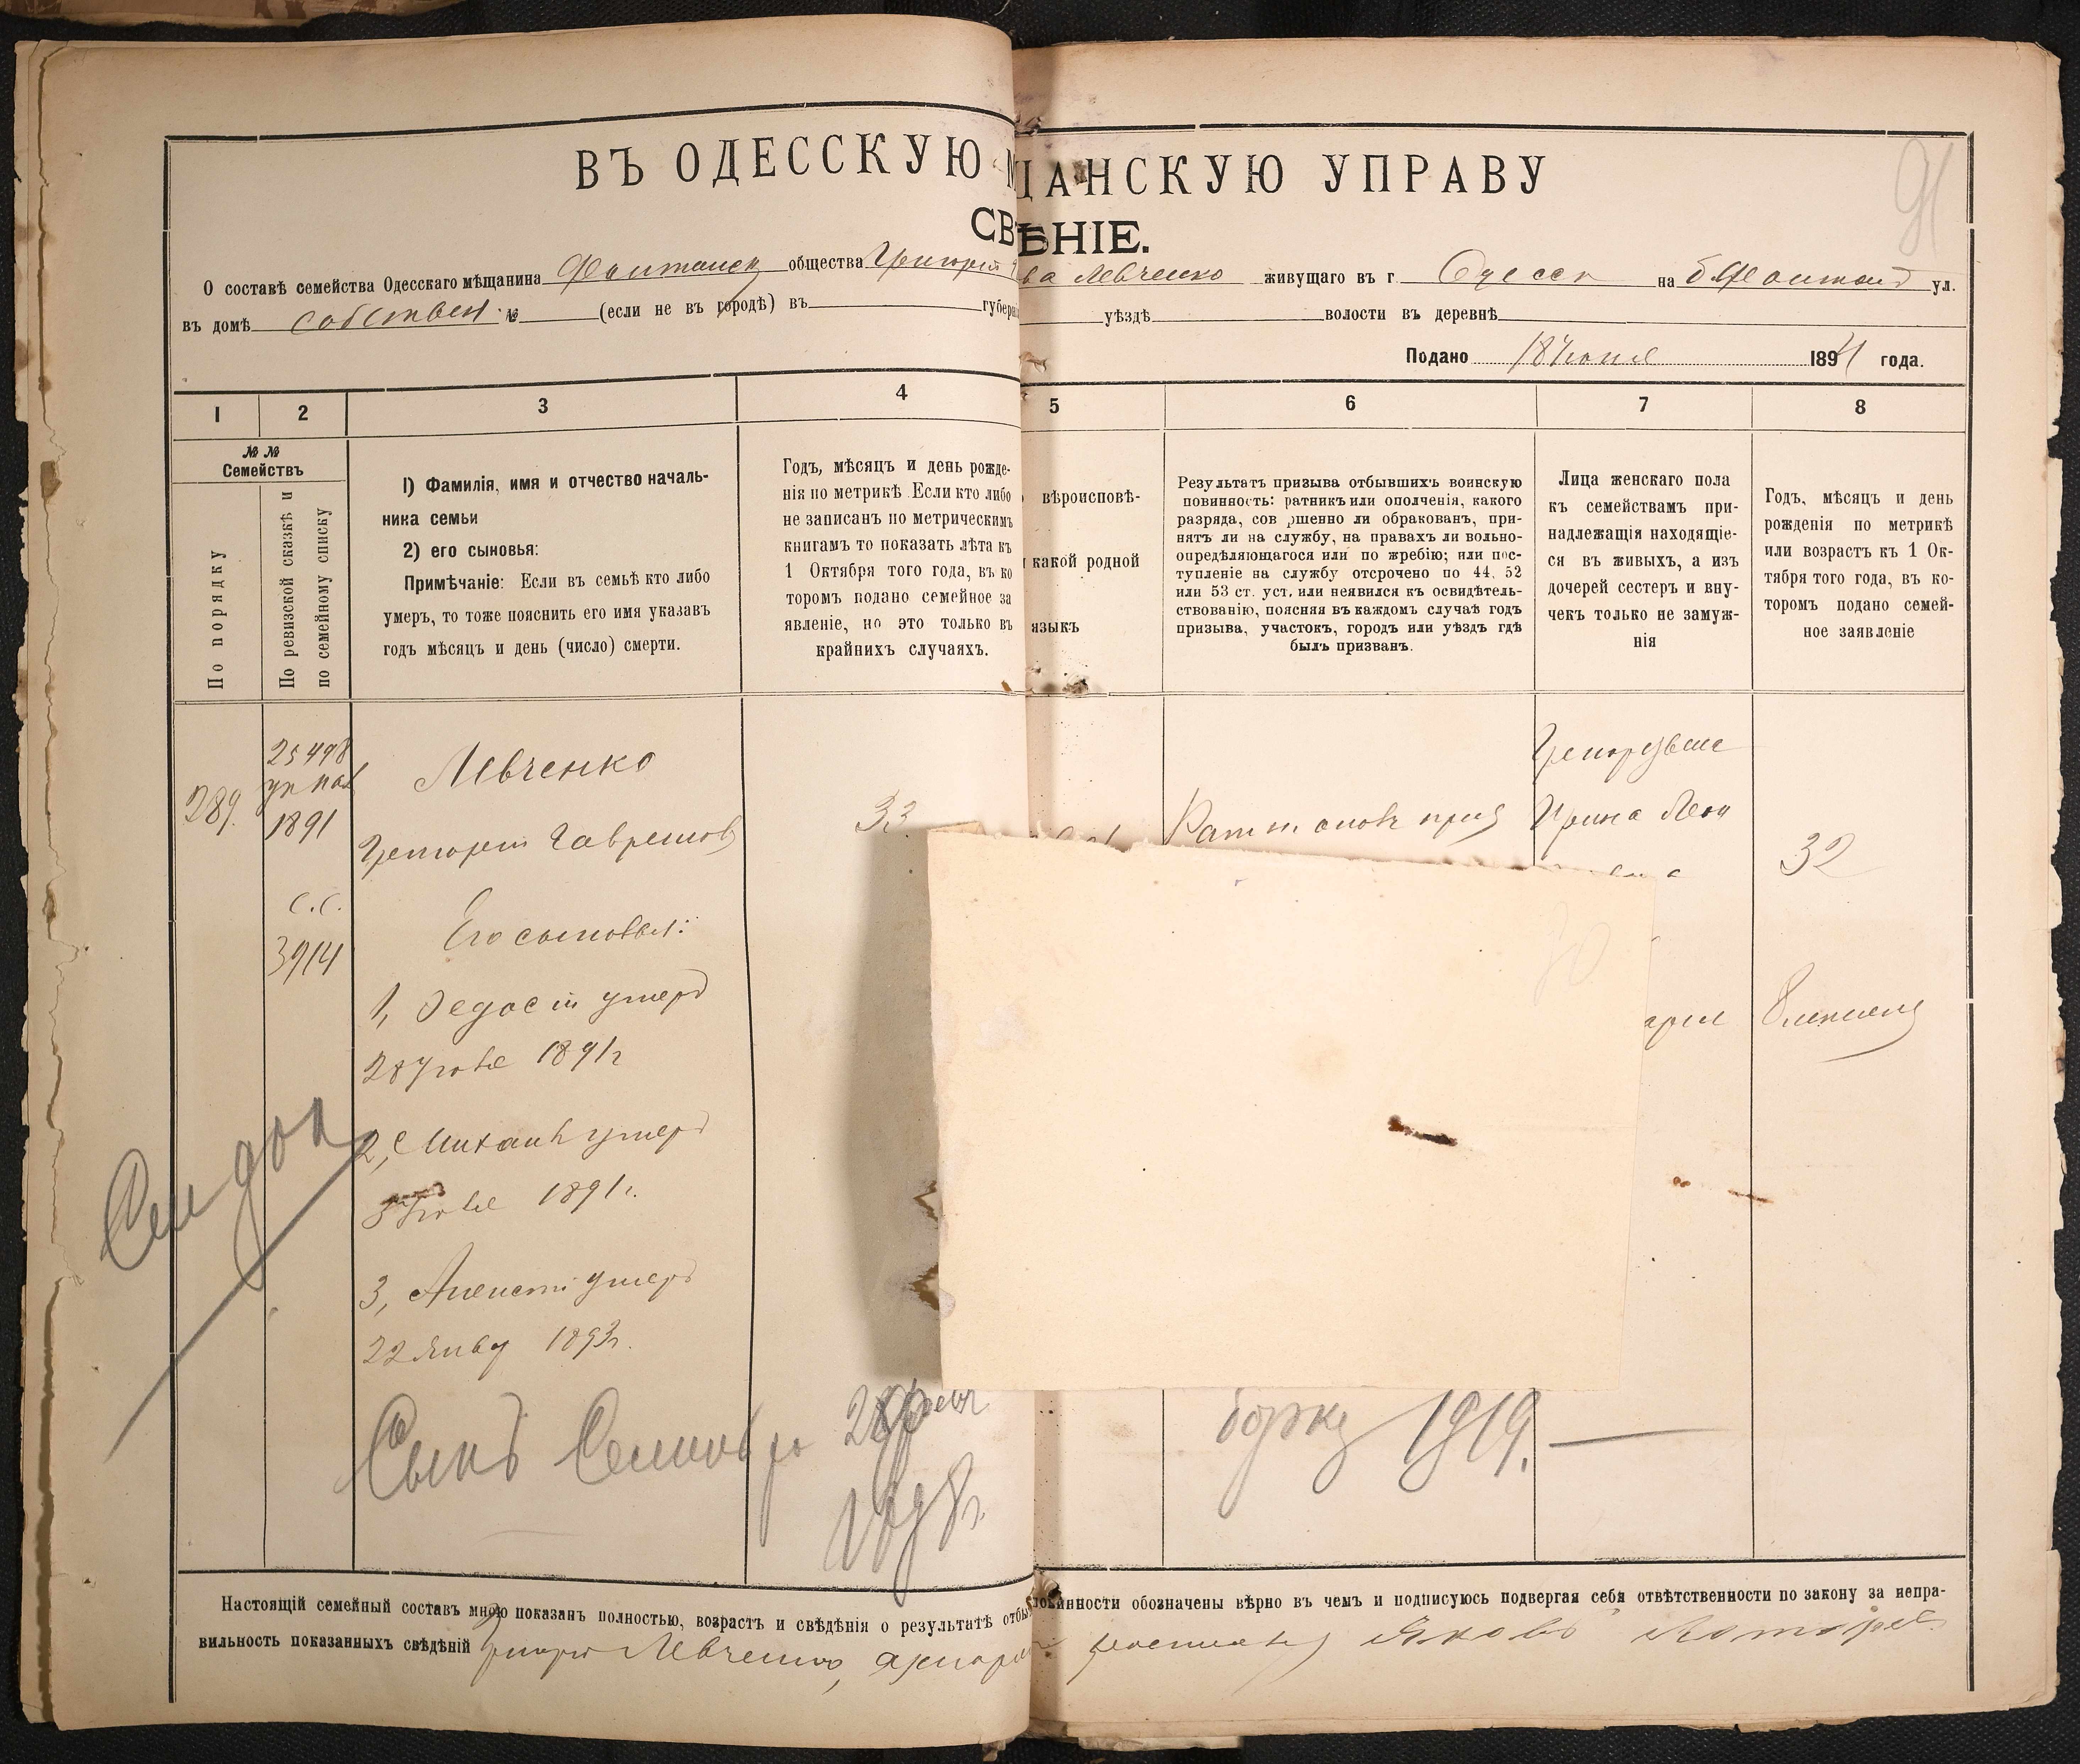 ВЪ ОДЕССКУЮ М ЩАНСКУЮ УПРАВУ
91
СВ ѢНІЕ.
О составѣ семейства Одесскаго мѣщанина общества Григорія ва Левченко живущаго въ г. Одессѣ на б. Фонтанѣ ул.
въ домѣ собствен. № (если не въ городѣ) въ губерн уѣздѣ волости въ деревнѣ
Подано 18 1894 года.
1 2 3 4 5 6 7 8
№ №
Семействъ
По порядку
По ревизской сказкѣ и
по семейному списку
1) Фамилія, имя и отчество началь-
ника семьи
2) его сыновья:
Примѣчаніе: Если въ семьѣ кто либо
умеръ, то тоже пояснить его имя указавъ
годъ мѣсяцъ и день (число) смерти.
Годъ, мѣсяцъ и день рожде-
нія по метрикѣ. Если кто либо
не записанъ по метрическимъ
книгамъ то показать лѣта къ
1 Октября того года, въ ко
торомъ подано семейное за
явленіе, но это только въ
крайнихъ случаяхъ.
вѣроисповѣ-
какой родной
языкъ
Результатъ призыва отбывшихъ воинскую
повинность: ратникъ или ополченія, какого
разряда, сов ршенно ли обракованъ, при-
нятъ ли на службу, на правахъ ли вольно-
опредѣляющагося или по жребію; или пос-
тупленіе на службу отсрочено по 44, 52
или 53 ст. уст. или неявился къ освидѣтель-
ствованію, поясняя въ каждомъ случаѣ годъ
призыва, участокъ, городъ или уѣздъ гдѣ
былъ призванъ.
Лица женскаго пола
къ семействамъ при-
надлежащія находящіе-
ся въ живыхъ, а изъ
дочерей сестеръ и вну-
чекъ только не замуж-
нія
Годъ, мѣсяцъ и день
рожденія по метрикѣ
или возрастъ къ 1 Ок-
тября того года, въ ко-
торомъ подано семей-
ное заявленіе
289.
25498
1891
с.с.
3914
Левченко
Григорій Гавриловъ
Его сыновья:
1, Федосій умеръ
28 1891 г
2, Михаилъ умеръ
1891 г.
3, Алексѣй умеръ
22 Янва 1893 г.
33
Ирина
32
Сынъ
1919.
Настоящій семейный составъ мною показанъ полностью, возрастъ и свѣдѣнія о результатѣ отбы повинности обозначены вѣрно въ чемъ и подписуюсь подвергая себя отвѣтственности по закону за непра-
вильность показанныхъ свѣдѣній Левченко, Яковъ